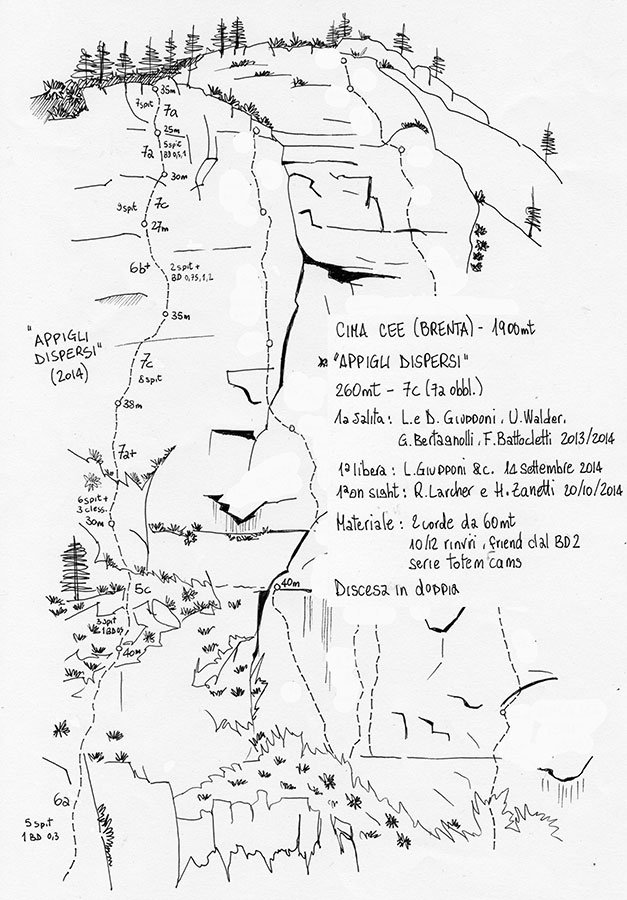 35m
7spit
7a
25m
7a
5spit
BD 0,5,1
30m
7c
9spit
27m
6b+
2spit+
BD 0,75,1,2
35m
"APPIGLI
DISPERSI"
(2014)
7c
8spit
38m
7a+
6spit+
3cless.
30m
5c
3spit
1BD 0,5
40m
6a
5spit
1 BD 0,3
40m
CIMA CEE (BRENTA) - 1900mt
"APPIGLI DISPERSI"
260mt - 7c (7a obbl.)
1a salita: L.e D. GIUPPONI, U.Walder,
G.Bertagnolli, F.Battocletti 2013/2014
1ª libera: L.GIUPPONI &c. 14 settembre 2014
1ªon sight: R.Larcher e H.Zanetti 20/10/2014
Materiale: 2 corde da 60mt
10/12 rinvii, friend dal BD2
serie totem cams
Discesa in doppia